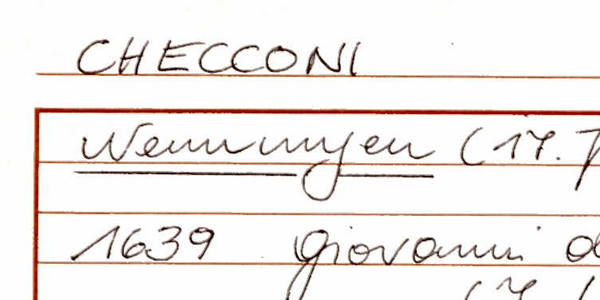 CHECCONI
Wemmingen (17.
1639 Giovanni